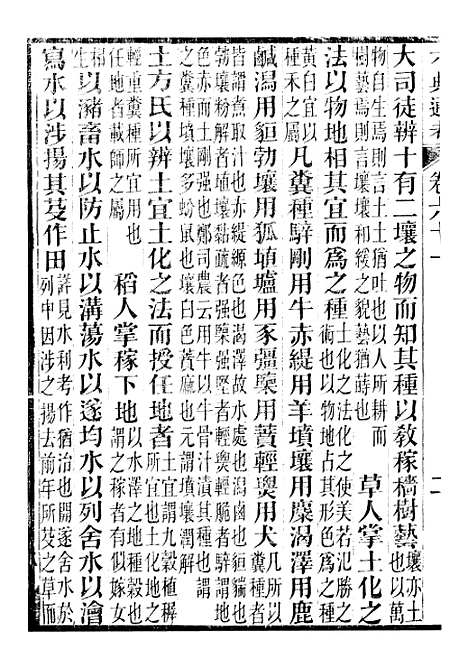 六典通考 卷六十一 二
大司徒辨十有二壤之物而知其種以敎稼穡樹藝壤亦土也以萬
物自生焉則言土土猶吐也以人所耕而樹藝焉則言壤壤和緩之貌藝猶蒔也 草人掌土化之
法以物地相其宜而爲之種土化之法化之使美若氾勝之術也以物地占其形色爲之種
黃白宜以種禾之屬凡糞種騂剛用牛赤緹用羊墳壤用麋渴澤用鹿
鹹潟用貆勃壤用狐埴壚用豕彊㯺用蕡輕爂用犬凡所以糞種者
皆謂煮取汁也赤緹縓色也渴澤故水處也潟鹵也貆貒也勃壤粉解者埴壚黏疏者强㯺强堅者輕爂輕脆者騂謂地
色赤而土剛强也鄭司農云用牛以牛骨汁漬其種也謂之糞種墳壤多蚡鼠也壤白色蕡麻也元謂墳壤潤解
土方氏以辨土宜土化之法而授任地者土宜謂九穀稙穉所宜也土化地之
輕重糞種所宜用也任地者載師之屬 稻人掌稼下地以水澤之地種穀也謂之稼者有似嫁女
相生以豬畜水以防止水以溝蕩水以遂均水以列舍水以澮
寫水以涉揚其芟作田詳見水利考作猶治也開遂舍水於列中因涉之揚去前年所芟之草而